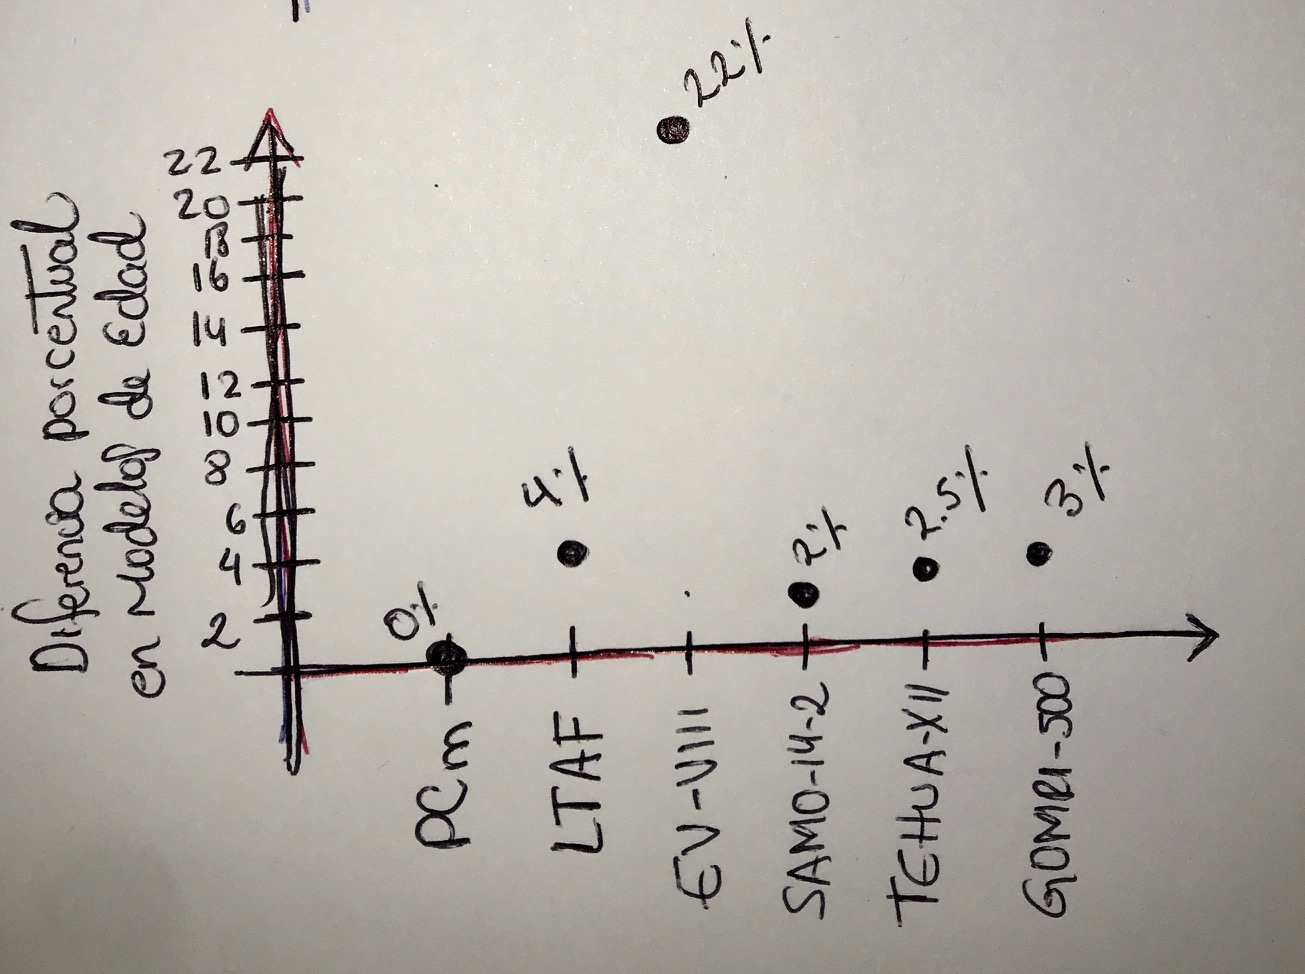 Diferencia porcentual
en Modelos de Edad
22
20
18
16
14
12
10
8
6
4
2
0%
4%
22%
2%
2.5%
3%
PCm
LTAF
EV-VIII
SAMO-14-2
TEHUA-XII
GOMRI-500